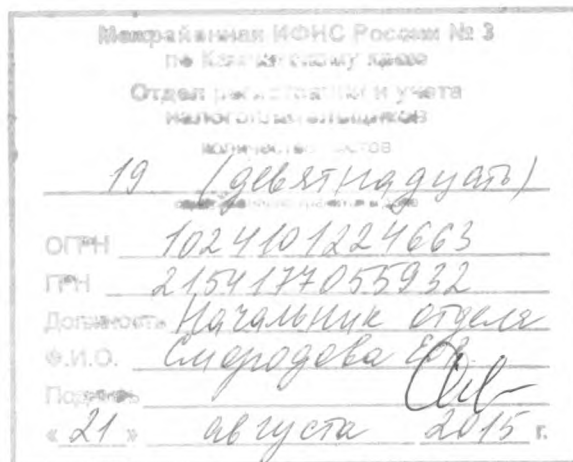 Межрайонная ИФНС России № 3
по Камчатскому краю
Отдел регистрации и учета
налогоплательщиков
количество листов
19 (девятнадцать)
ОГРН 1024101224663
ГРН 2154177055932
Должность Начальник отдела
Ф.И.О. Смородова
Подпись
« 21 » августа 2015 г.